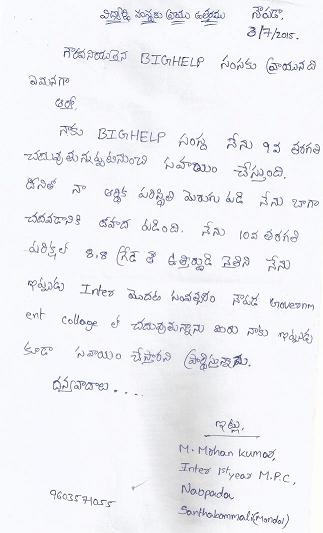 విద్యార్థి సంస్థకు వ్రాయు ఉత్తరము నౌపడా,
3/7/2015.
గౌరవనీయులైన BIGHELP సంస్థకు వ్రాయునది
ఏమనగా
నాకు BIGHELP సంస్థ నేను 9వ తరగతి
చదువుతున్నప్పటినుంచి సహాయం చేస్తుంది.
దీనితో నా ఆర్థిక పరిస్థితి మెరుగు పడి నేను బాగా
చదవడానికి దోహద పడింది. నేను 10వ తరగతి
పరీక్షల్లో 8.8 గ్రేడ్ తో ఉత్తీర్ణుడి నైతిని నేను
ఇప్పుడు Inter మొదటి సంవత్సరం నౌపడ Governm
ent collage లో చదువుతున్నాను మీరు నాకు ఇప్పుడు
కూడా సహాయం చేస్తారని ప్రార్థిస్తున్నాను.
ధన్యవాదాలు....
ఇట్లు,
M. Mohan Kumar,
Inter 1st year M.P.C,
Naopada
Santhabommali(Mandal)
9603571055